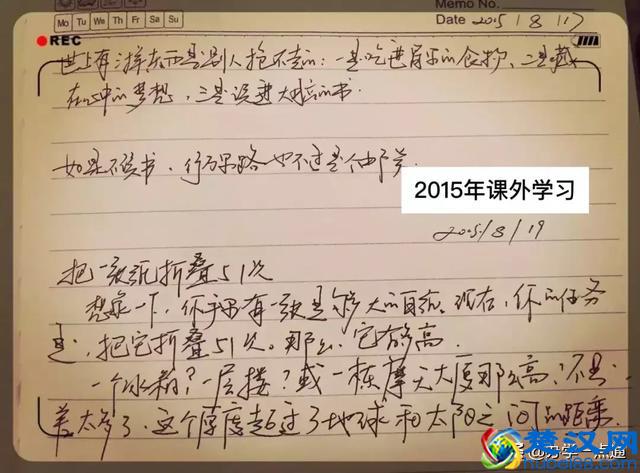 Memo No.
Mo Tu We Th Fr Sa Su
Date 2015 / 8 / 17
REC
世上有三样东西是别人抢不走的：一是吃进胃里的食物，二是藏
在心中的梦想，三是读进大脑的书．
如果不读书，行万里路也不过是个邮差．
2015年课外学习
2015/8/19
把一张纸折叠51次
想象一下，你手里有一张足够大的白纸．现在，你的任务
是，把它折叠51次。那么，它有多高．
一个冰箱？一层楼？或一栋摩天大厦那么高？不是
差太多了，这个厚度超过了地球和太阳之间的距离．
楚汉网
hubei88.com
办学一点通